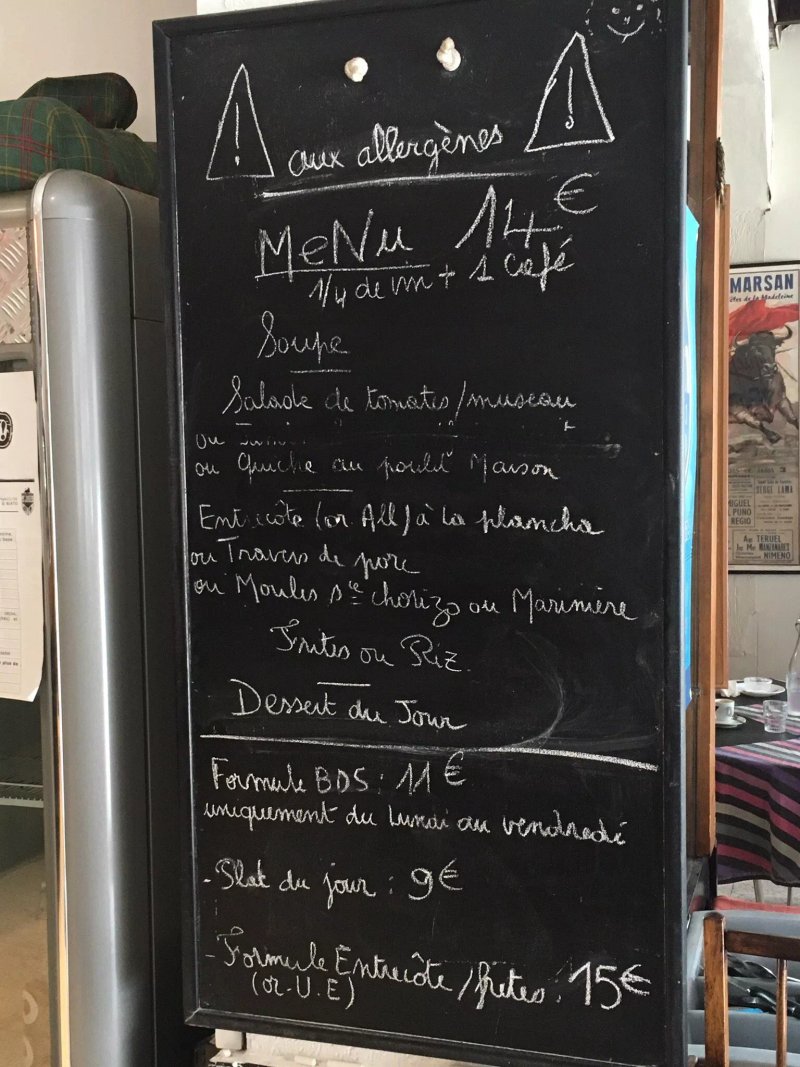 ! aux allergènes !
MeNu 14€
1/4 de vin + 1 Café
Soupe
Salade de tomates/museau
ou
ou Quiche au poulet Maison
Entrecôte (or. All) à la plancha
ou Travers de porc
ou Moules sce chorizo ou Marinière
Frites ou Riz.
Dessert du Jour
Formule BDS : 11€
uniquement du lundi au vendredi
- Plat du jour : 9€
- Formule Entrecôte/frites : 15€
(or. U.E)
MARSAN
fêtes de la Madeleine
SERGE LAMA
MIGUEL
PUNO
REGIO
TERUEL
MANZANARES
NIMENO